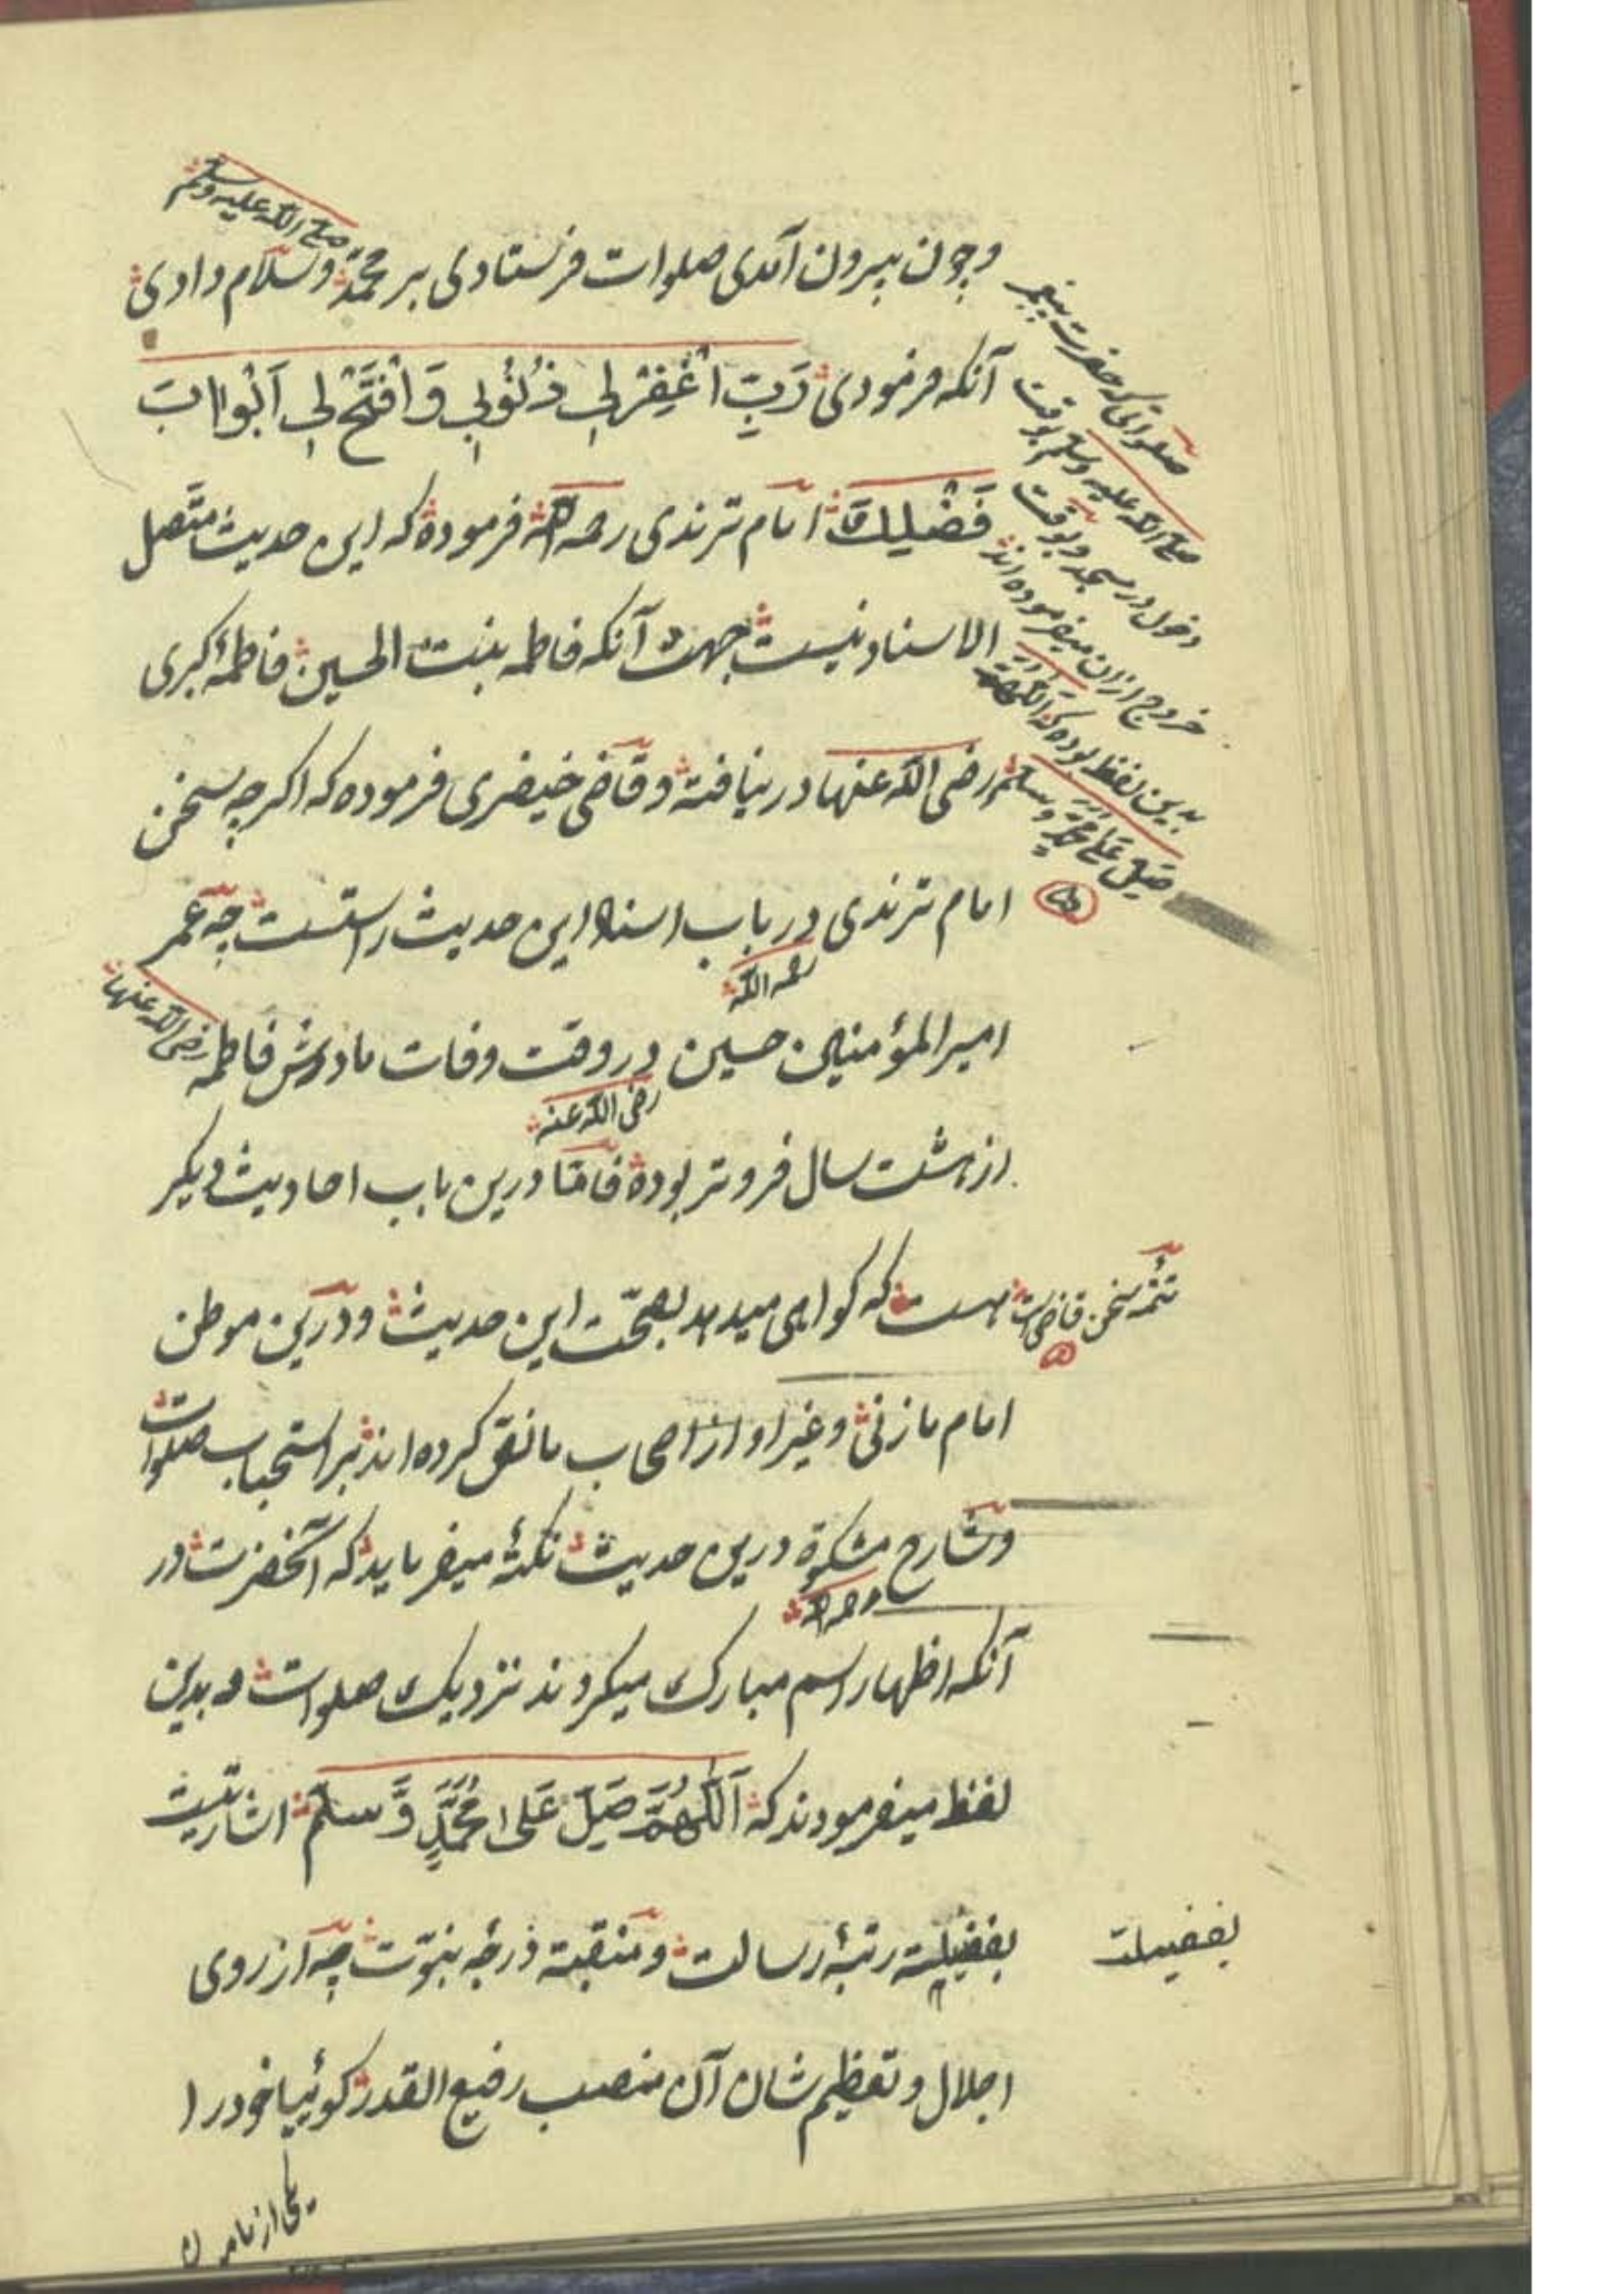 وچون بیرون آمدی صلوات فرستادی بر محمد وسلام دادی
صلی الله علیه وسلم
آنکه فرمودی رَبِّ اغْفِرْ لِی ذُنُوبِی وَافْتَحْ لِی اَبْوابَ
فَضْلِكَ امام ترمذی رحمه الله فرموده که این حدیث متّصل
الاسناد نیست بجهت آنکه فاطمه بنت الحسین فاطمهٔ کبری
رضی الله عنها در نیافته وقاضی خیضری فرموده که اکرچه سخن
امام ترمذی در باب اسناد این حدیث راستست چه عمر
رحمه الله
امیر المؤمنین حسین در وقت وفات مادرش فاطمه
رضی الله عنها
رضی الله عنه
از هشت سال فروتر بوده فامّا درین باب احادیث دیکر
هست که کواهی میدهد بصحّت این حدیث ودرین موطن
امام مازنی وغیر او از اصحاب ما نصّ کرده اند بر استحباب صلوات
وشارح مشکوة درین حدیث نکتهٔ میفرماید که آنحضرت در
رحمه الله
آنکه اظهار اسم مبارک میکردند نزدیک صلوات و بدین
لفظ میفرمودند که اَللّٰهُمَّ صَلِّ عَلی مُحَمَّدٍ وَّسلّم اشارتیست
بفضیلت رتبهٔ رسالت ومنقبة درجهٔ نبوّت چه از روی
اجلال وتعظیم شان آن منصب رفیع القدر کوئیا خود را
صلواتی که حضرت پیغمبر
صلی الله علیه وسلم بوقت
دخول در مسجد وبوقت
خروج ازان میفرموده اند
بدین لفظ بوده که اللّهمّ
صَلِّ عَلی محمّد وسلم
تتمّهٔ سخن قاضی است
بفضیلت
یکی از